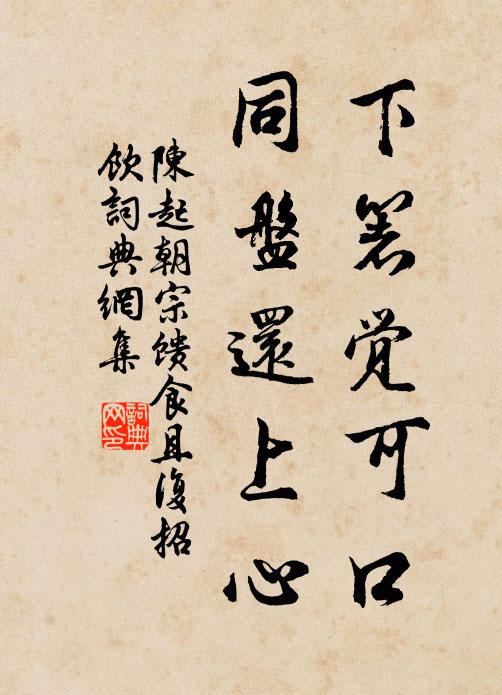 下箸觉可口
同盤還上心
陳起朝宗馈食且復招
飲詞典網集
詞典
网印